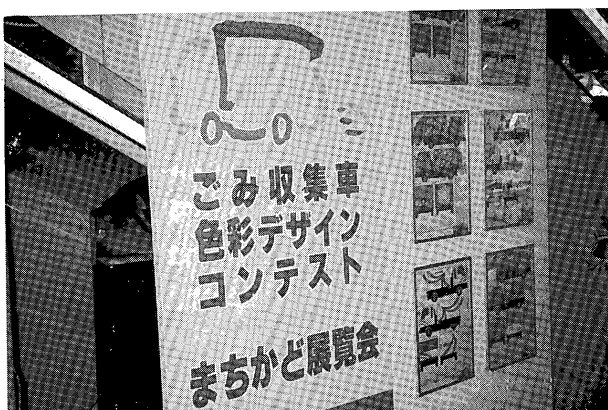 ごみ収集車
色彩デザイン
コンテスト
まちかど展覧会